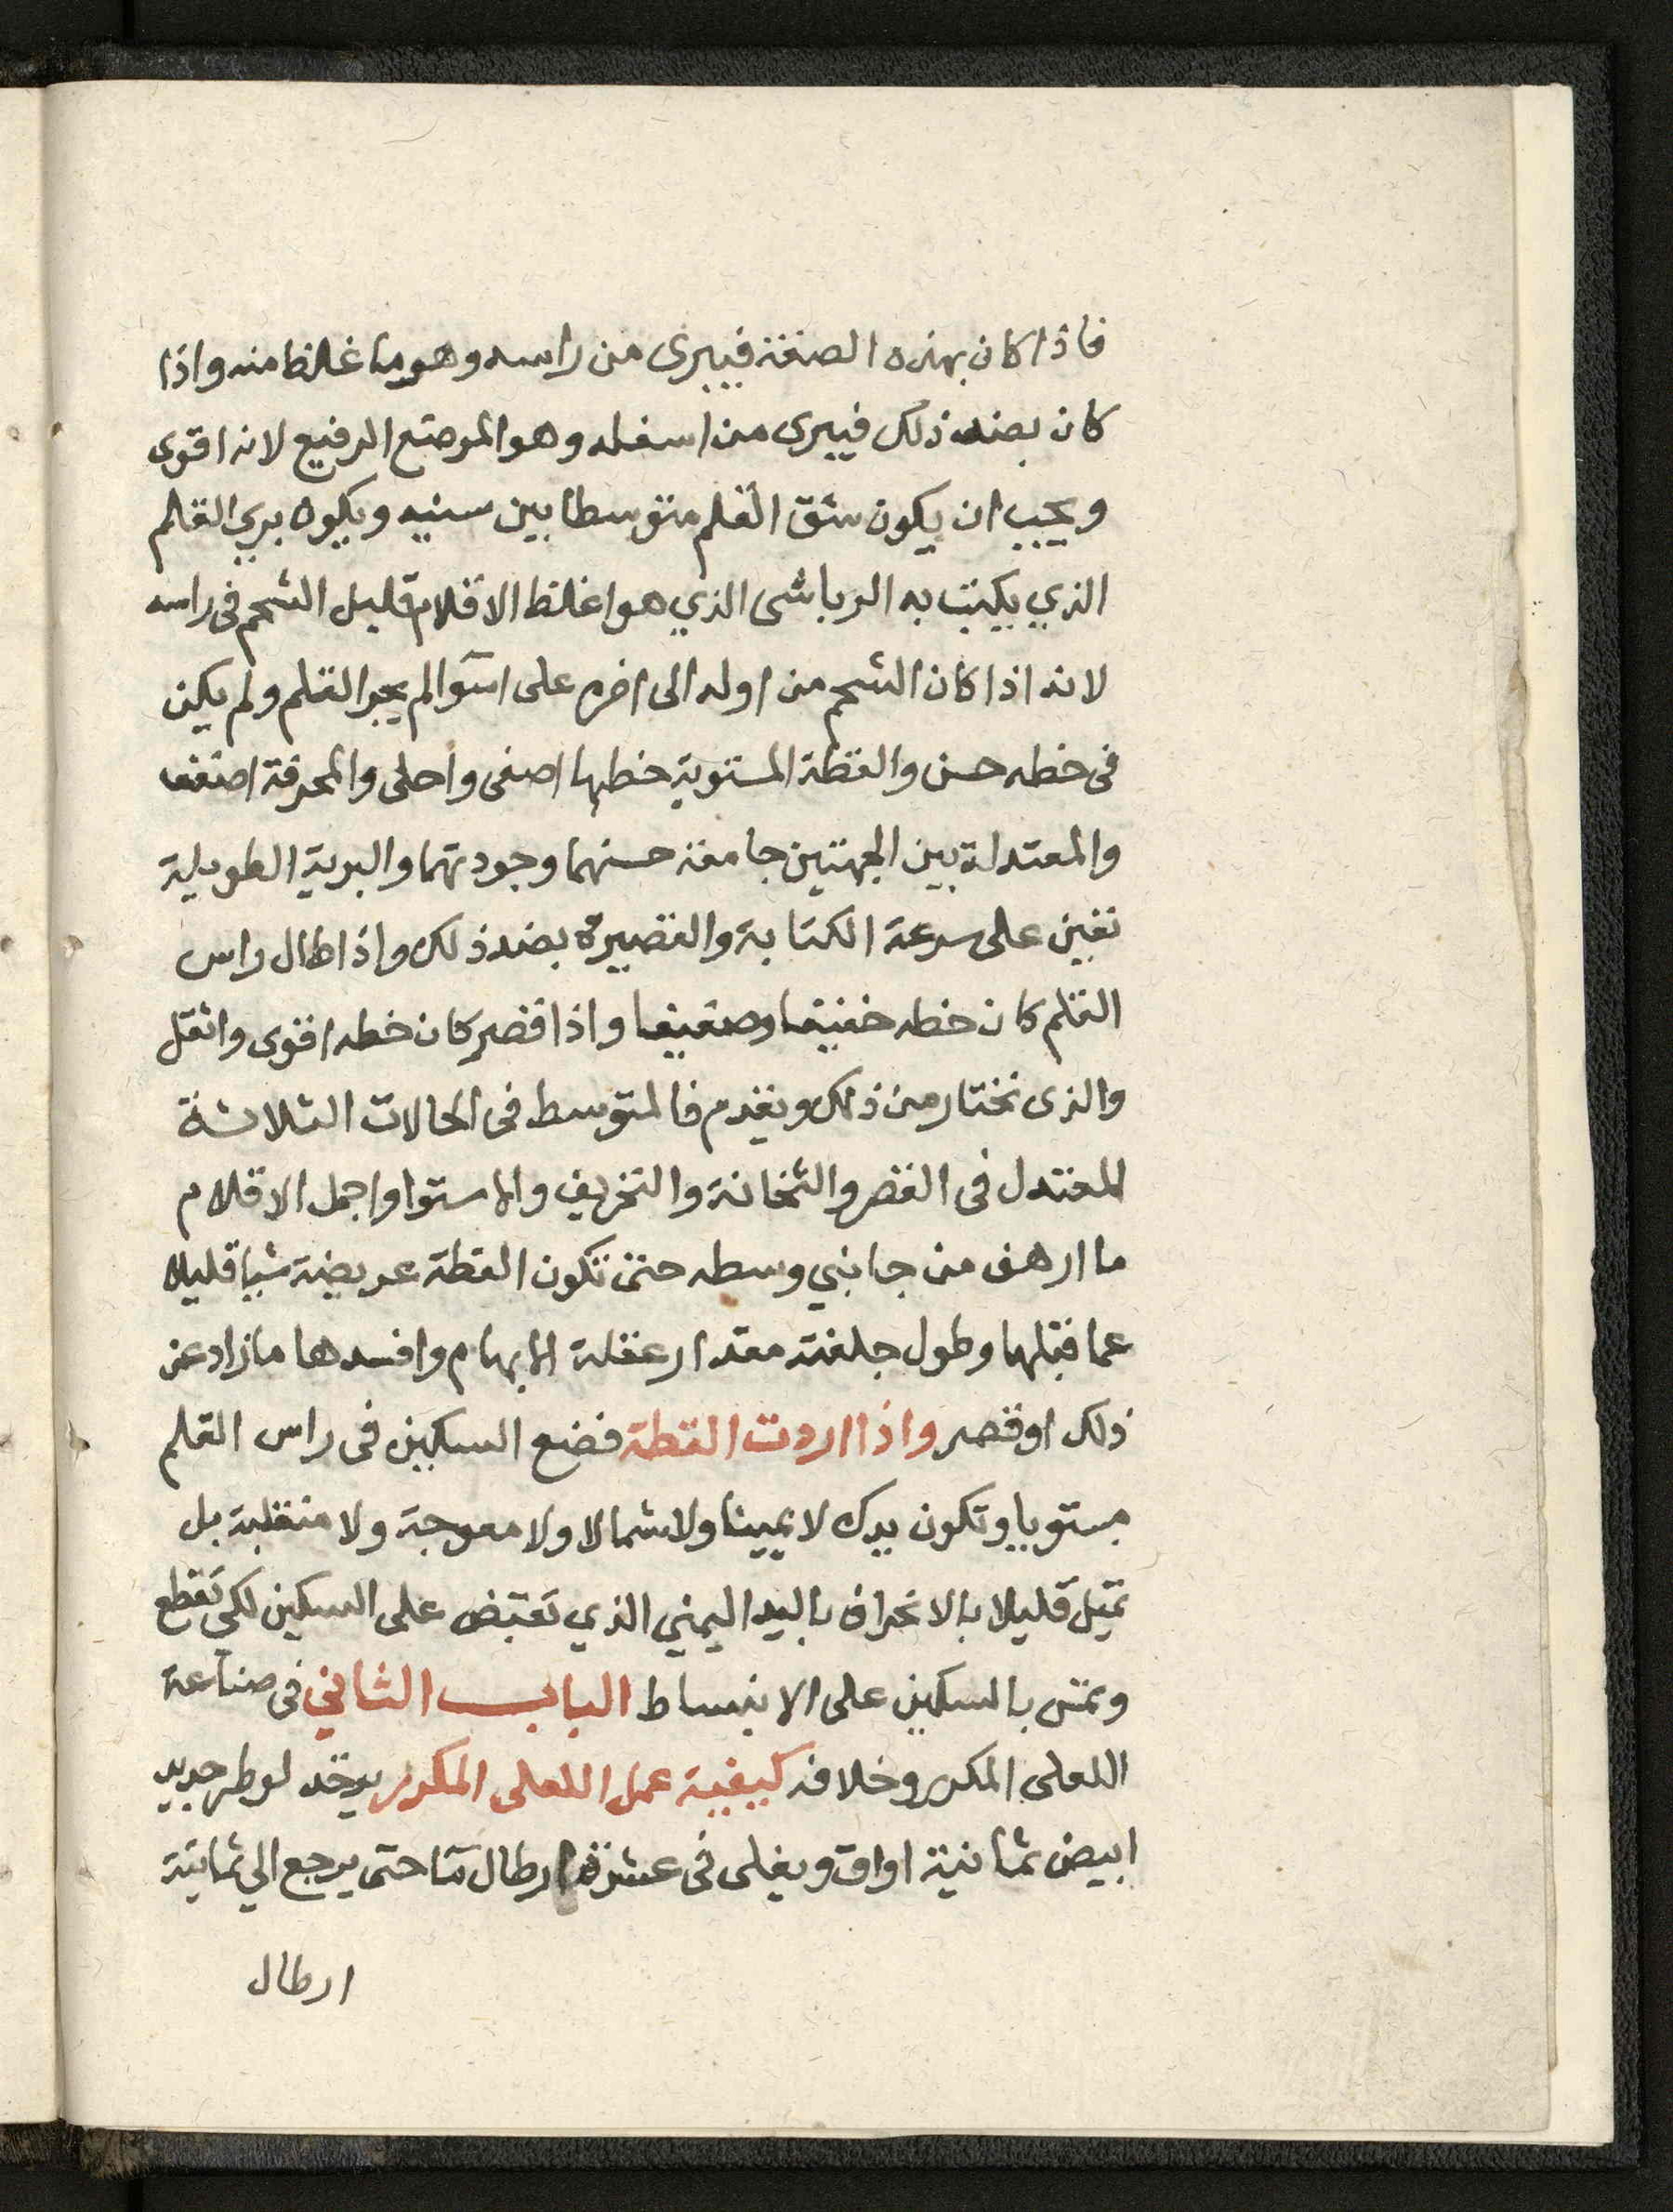 فاذا كان بهذه الصفة فيبرى من راسه وهو ما غلظ منه واذا
كان بضد ذلك فيبرى من اسفله وهو الموضع الرفيع لانه اقوى
ويجب ان يكون شق القلم متوسطا بين سنيه ويكون بري القلم
الذي يكتب به الرياشى الذي هو اغلظ الاقلام قليل الشحم فى راسه
لانه اذا كان الشحم من اوله الى اخره على استوا لم يجر القلم ولم يكن
فى خطه حسن والقطة المستوية خطها اصفى واحلى والمحرفة اضعف
والمعتدلة بين الجهتين جامعة حسنهما وجودتهما والبرية الطويلة
تعين على سرعة الكتابة والقصيرة بضد ذلك واذا طال راس
القلم كان خطه خفيفا وضعيفا واذا قصر كان خطه اقوى واثقل
والذى نختار من ذلك ويقدم فالمتوسط فى الحالات الثلاثة
المعتدل فى القصر والثخانة والتحريف والاستوا واجمل الاقلام
ما ارهف من جانبي وسطه حتى تكون القطة عريضة شيا قليلا
عما قبلها وطول جلفته مقدار عقلة الابهام وافسدها ما زاد عن
ذلك او قصر واذا اردت القطة فضع السكين فى راس القلم
مستويا وتكون يدك لا يمينا ولا شمالا ولا معوجة ولا منقلبة بل
تميل قليلا بالانحراف باليد اليمني الذي تقبض على السكين لكي تقطع
وتمش بالسكين على الانبساط الباب الثاني فى صناعة
اللعلى المكرر وخلافه كيفية عمل اللعلى المكرر يوخد لوطر جديد
ابيض ثمانية اواق ويغلى فى عشرة ارطال ما حتى يرجع الي ثمانية
ارطال